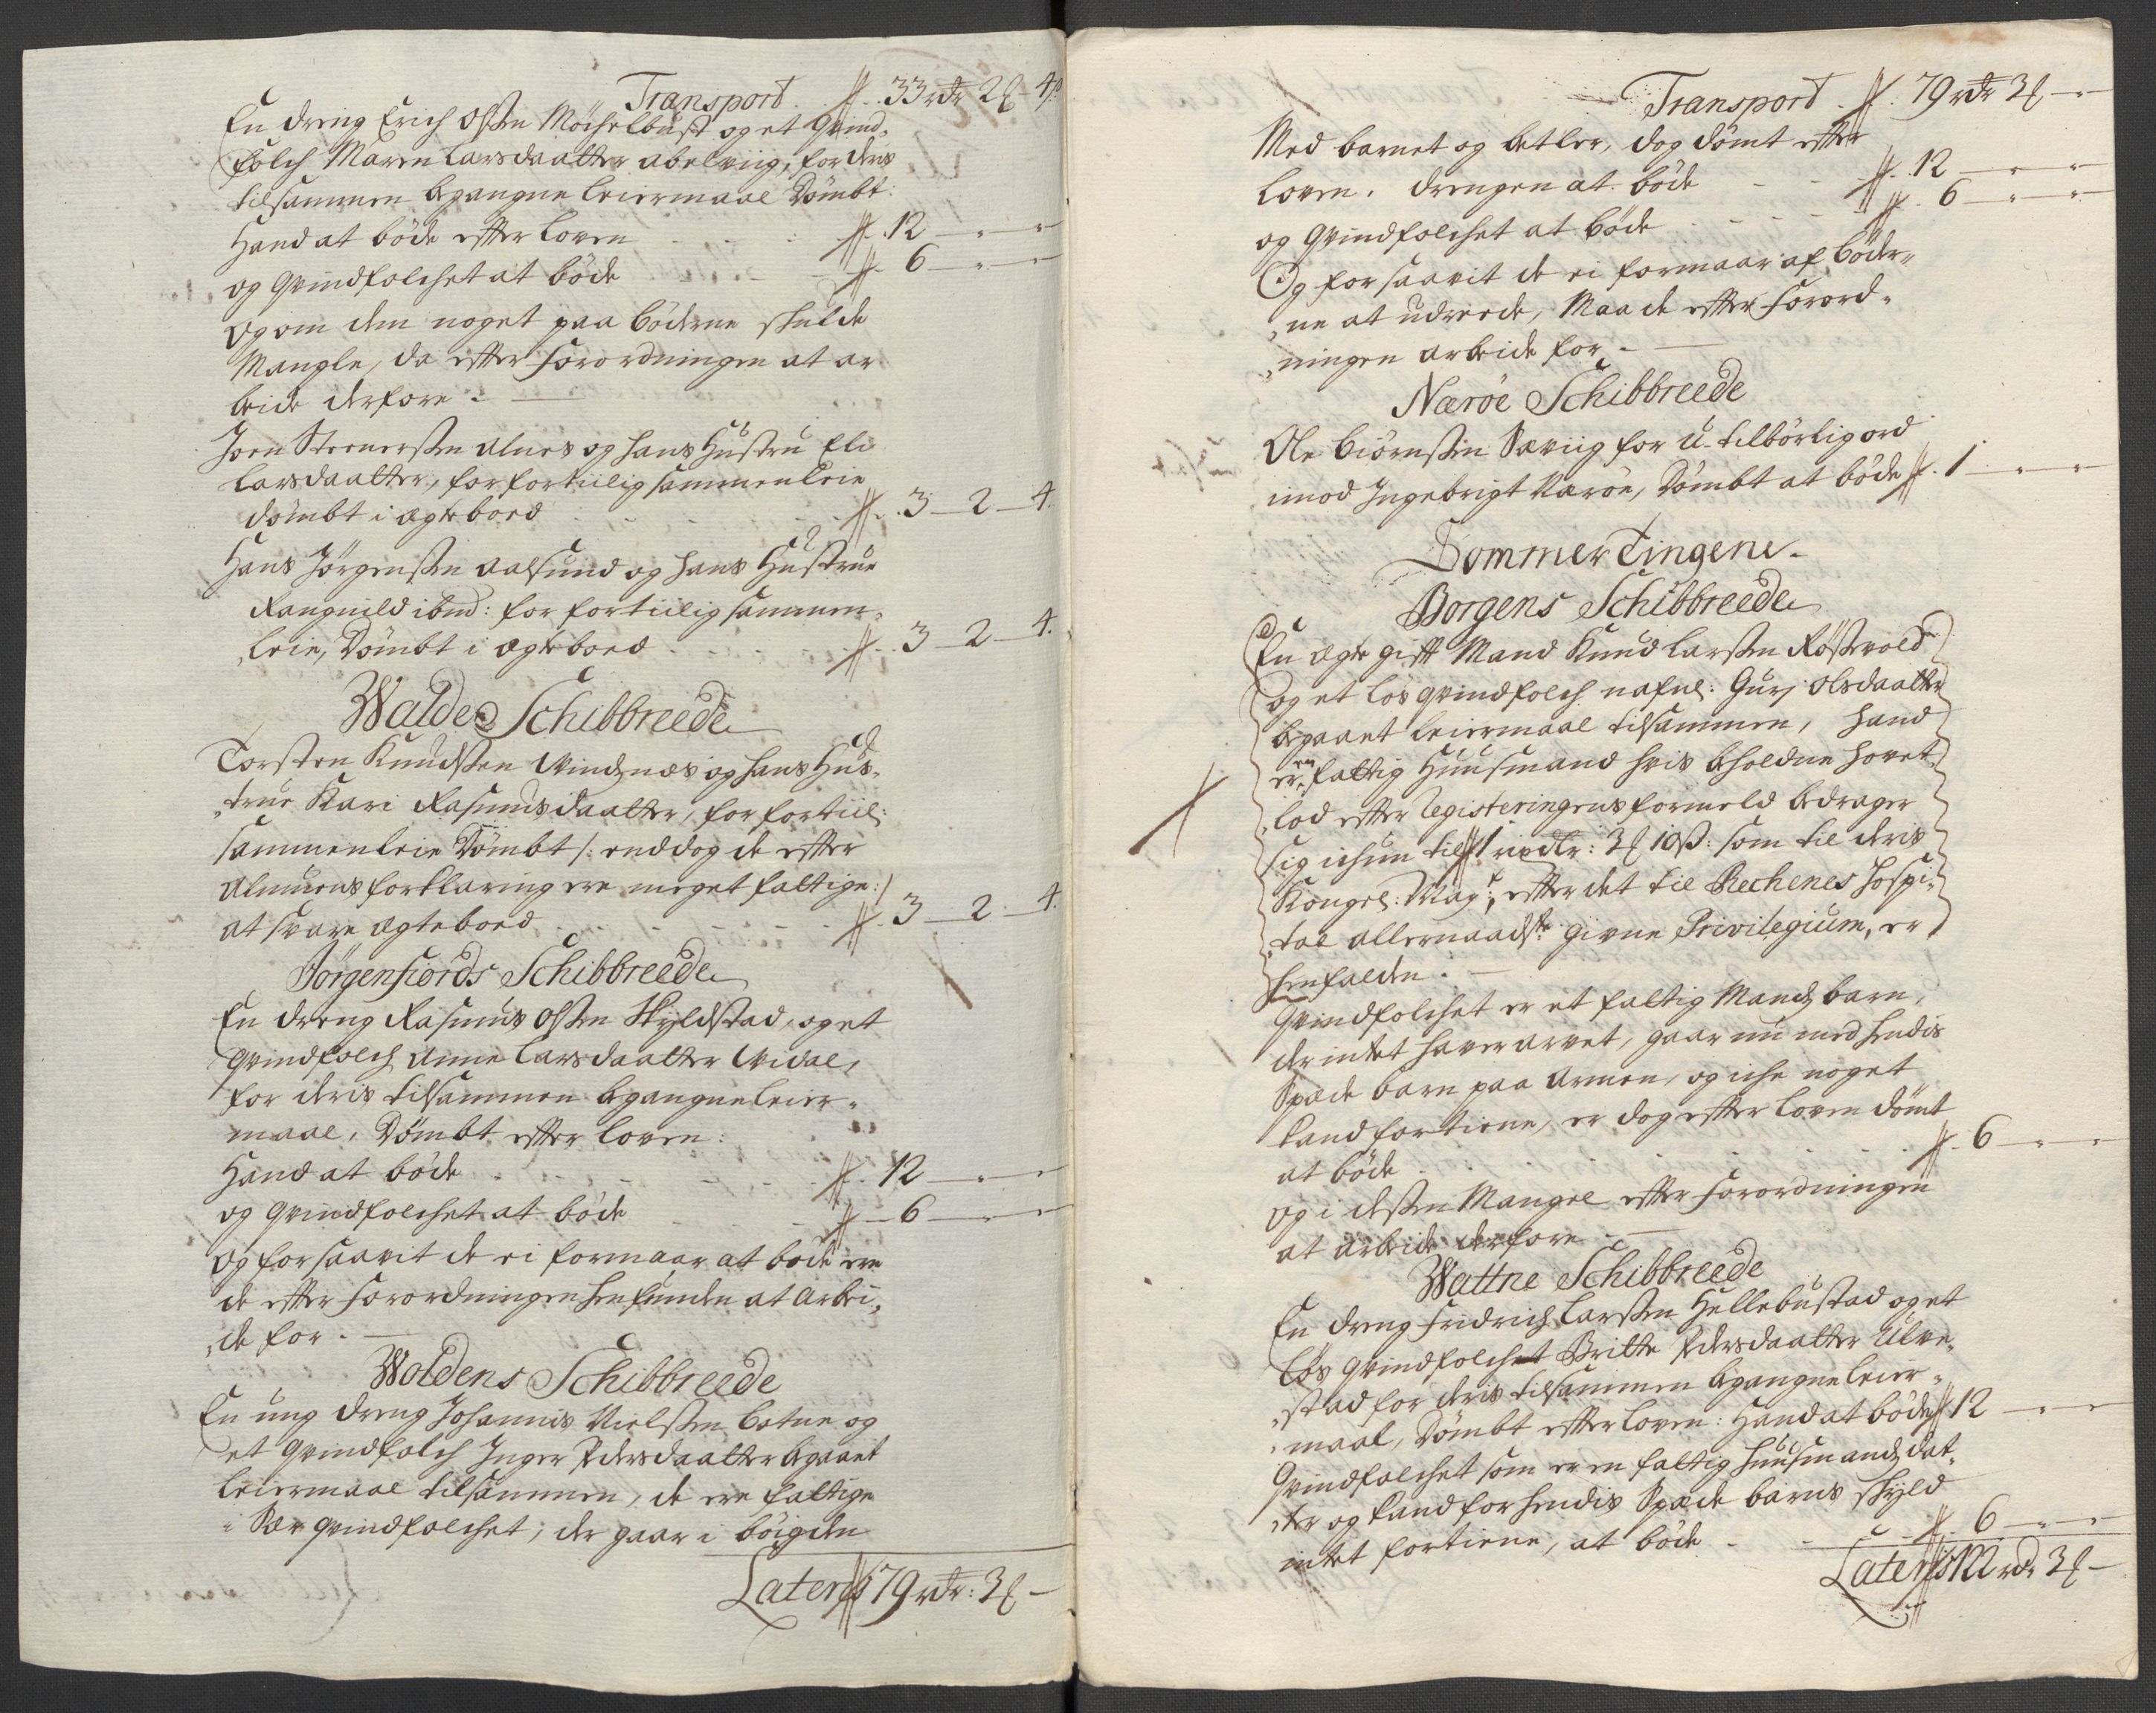 Transport. 33 rdr 2 4ß
En dreng Erich Olssen Möchelbust og et Qvind-
folch Maren Larsdaatter Abelviig, for deris
tilsammen begangne Leiermaal Dömbt:
Hand at böde efter Loven - 12 - -
og Qvindfolchet at böde - 6 - -
og om dem noget paa böderne skulde
Mangle, da efter Forordningen at ar
beide derfore.
Joen Steenerssen Alnes og hans Hustru Eli
Larsdaatter, for fortiilig sammenleie
dömbt i ægtebod - 3 - 2 - 4.
Hans Jörgenssen Aalsund og hans Hustrue
Rangnild ibnd: for fortiilig sammen-
leie, Dömbt i ægtebod - 3 - 2 - 4.
Walde Schibbreede
Torsten Knudssen Windnæs og hans Hus-
true Kari Rasmusdaatter, for fortiil:
sammenleie Dömbt /: enddog de efter
Almuens forklaring ere meget fattige:/
at svare ægtebod - 3 - 2 - 4.
Jörgenfiords Schibbreede
En dreng Rasmus Olssen Skyldstad, og et
qvindfolch Anne Larsdaatter Widal,
for deris tilsammen begangne Leier-
maal, Dömbt efter Loven:
Hand at böde - 12 - -
og Qvindfolchet at böde - 6 - -
og forsaavit de ei formaar at böde ere
de efter Forordningen henfunden at Arbei-
de for.
Woldens Schibbreede
En ung dreng Johannis Nielssen Botne og
et Qvindfolch Inger Pedersdaatter begaaet
Leiermaal tilsammen, de ere fattige
i Sær qvindfolchet, der gaar i böigden
Lateris 79 rdr: 3 -
Transport. 79 rdr 3 -
Med barnet og betler, dog dömt efter
Loven. drengen at böde - 12 - -
og Qvindfolchet at böde - 6 - -
Og forsaavit de ei formaar af böder-
ne at udrede, Maa de efter Forord-
ningen arbeide for.
Næröe Schibbreede
Ole Biörnssen Saviig for u-tilbörlig ord
imod Ingebrigt Naröe, Dömbt at böde 1 - -
Sommer Tingene
Borgens Schibbreede
En ægte gift Mand Knud Larssen Rösßevold
og et lös qvindfolch nafnl: Gurj Olsdaatter
begaaet Leiermaal tilsammen, hand
er en fattig Huusmand hvis beholdne hovet-
lod efter Registeringens formeld bedrager
sig ichun til 1 rixdlr: 3 10ß: som til deris
Kongel: May:t, efter det til Rechenes Hospi-
tal allernaadste givne Privilegium, er
henfalden.
Qvindfolchet er et fattig Mands barn,
der intet haver arvet, gaar nu med hendis
Spæde barn paa Armen, og iche noget
kand fortiene, er dog efter Loven dömt
at böde - 6 - -
og i dessen Mangel efter Forordningen
at arbeide derfore
Wattne Schibbreede
En dreng Fridrich Larssen Hellebustad og et
Lös qvindfolchet Britte Pedersdaatter Ulve-
stad for deris tilsammen begangne Leier-
maal, Dömbt efter Loven: Hand at böde 12 - -
Qvindfolchet som er en fattig huusmands dat-
ter og kand for hendis Spæde barns skyld
intet fortiene, at böde - 6 - -
Lateris 122 rdr 3 -